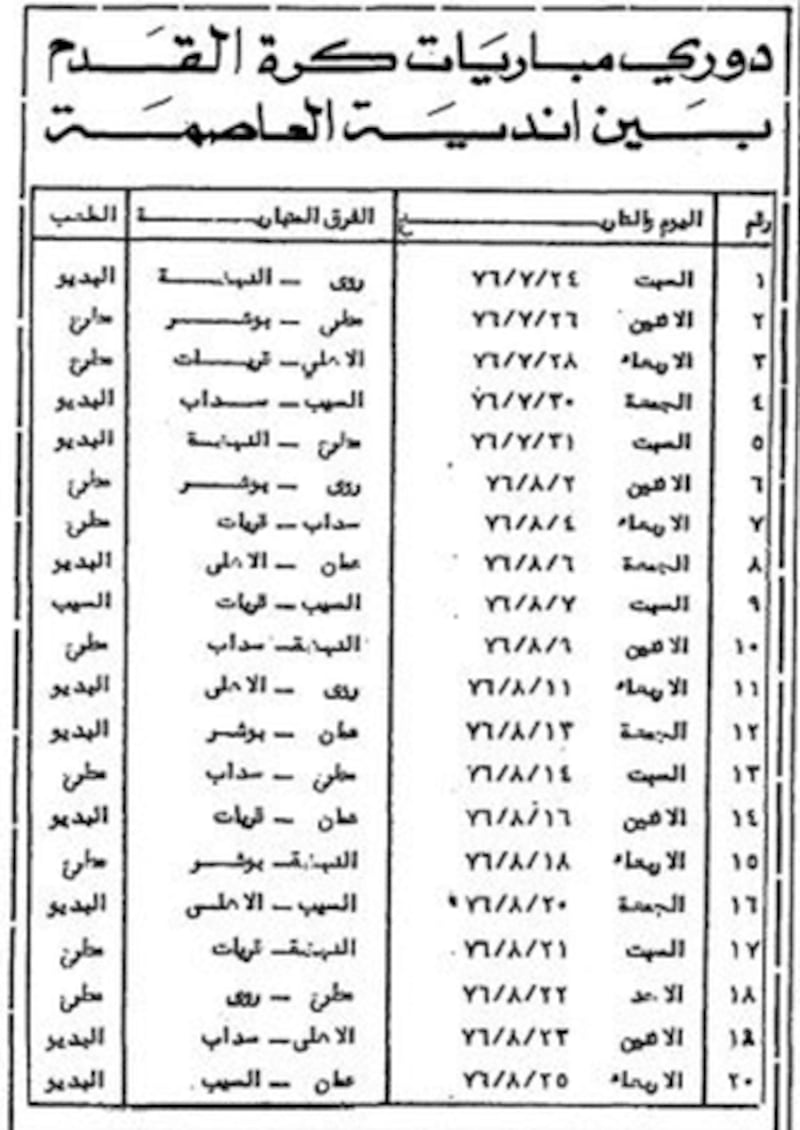 دوري مباريات كرة القدم
بين اندية العاصمة
رقم اليوم والتاريخ الفرق المتبارية الملعب
١ السبت ٧٦/٧/٢٤ روى - النهضة البديو
٢ الاثنين ٧٦/٧/٢٦ مطرح - بوشر مطرح
٣ الاربعاء ٧٦/٧/٢٨ الاهلي - قريات مطرح
٤ الجمعة ٧٦/٧/٣٠ السيب - سداب البديو
٥ السبت ٧٦/٧/٣١ مطرح - النهضة البديو
٦ الاثنين ٧٦/٨/٢ روى - بوشر مطرح
٧ الاربعاء ٧٦/٨/٤ سداب - قريات مطرح
٨ الجمعة ٧٦/٨/٦ عمان - الاهلى البديو
٩ السبت ٧٦/٨/٧ السيب - قريات السيب
١٠ الاثنين ٧٦/٨/٩ النهضة - سداب مطرح
١١ الاربعاء ٧٦/٨/١١ روى - الاهلى البديو
١٢ الجمعة ٧٦/٨/١٣ عمان - بوشر البديو
١٣ السبت ٧٦/٨/١٤ مطرح - سداب مطرح
١٤ الاثنين ٧٦/٨/١٦ عمان - قريات البديو
١٥ الاربعاء ٧٦/٨/١٨ النهضة - بوشر مطرح
١٦ الجمعة ٧٦/٨/٢٠ السيب - الاهلى البديو
١٧ السبت ٧٦/٨/٢١ النهضة - قريات مطرح
١٨ الاحد ٧٦/٨/٢٢ مطرح - روى مطرح
١٩ الاثنين ٧٦/٨/٢٣ الاهلى - سداب البديو
٢٠ الاربعاء ٧٦/٨/٢٥ عمان - السيب البديو